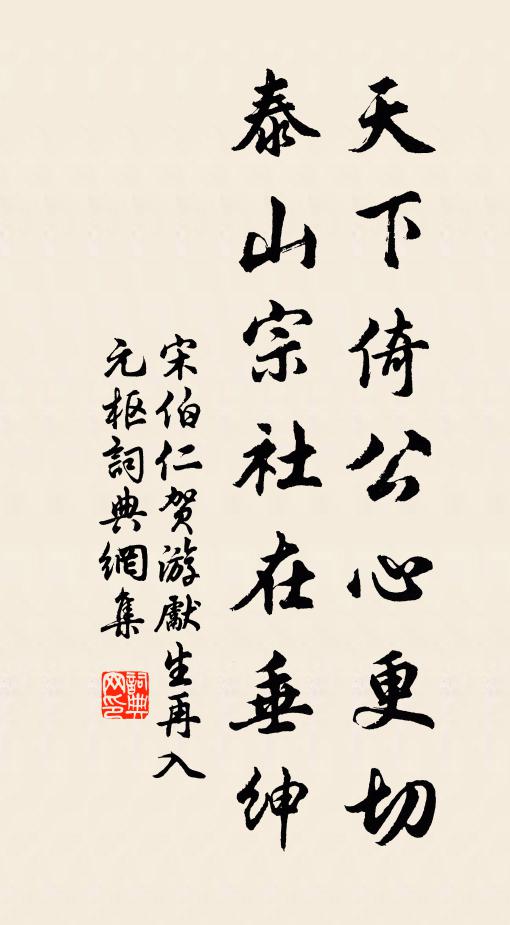 天下倚公心更切
泰山宗社在垂紳
宋伯仁贺游獻生再入
元枢詞典網集
詞典网印